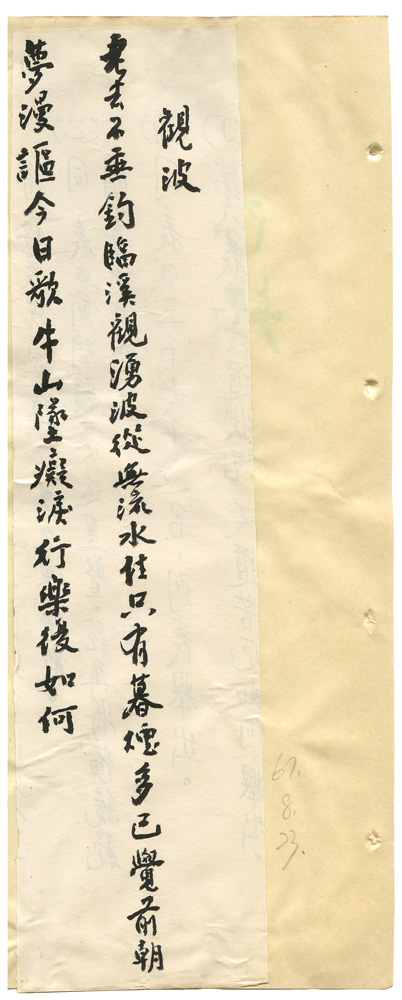 觀波
老去不垂釣臨溪觀湧波從無流水住只有暮煙多已覺前朝
夢漫謳今日歌牛山墜癡淚行樂復如何
67.
8.
23.